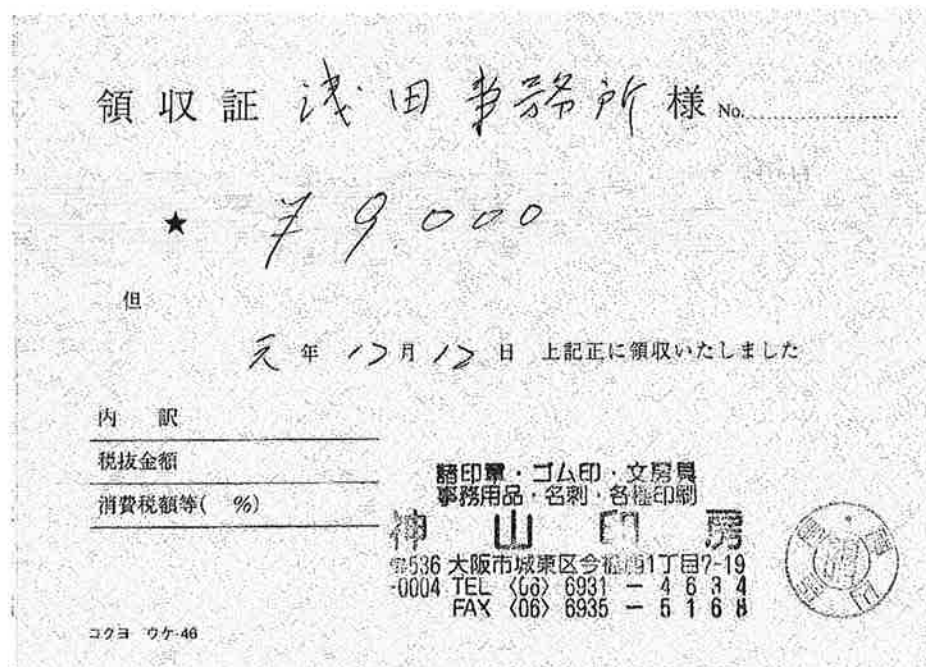 領収証 浅田事務所 様 No.
★ ¥9.000
但
元年12月12日 上記正に領収いたしました
内 訳
税抜金額
消費税額等( %)
諸印章・ゴム印・文房具
事務用品・名刺・各種印刷
神山印房
〒536 大阪市城東区今福南1丁目7-19
-0004 TEL (06) 6931-4634
FAX (06) 6935-5168
コクヨ ウケ-46